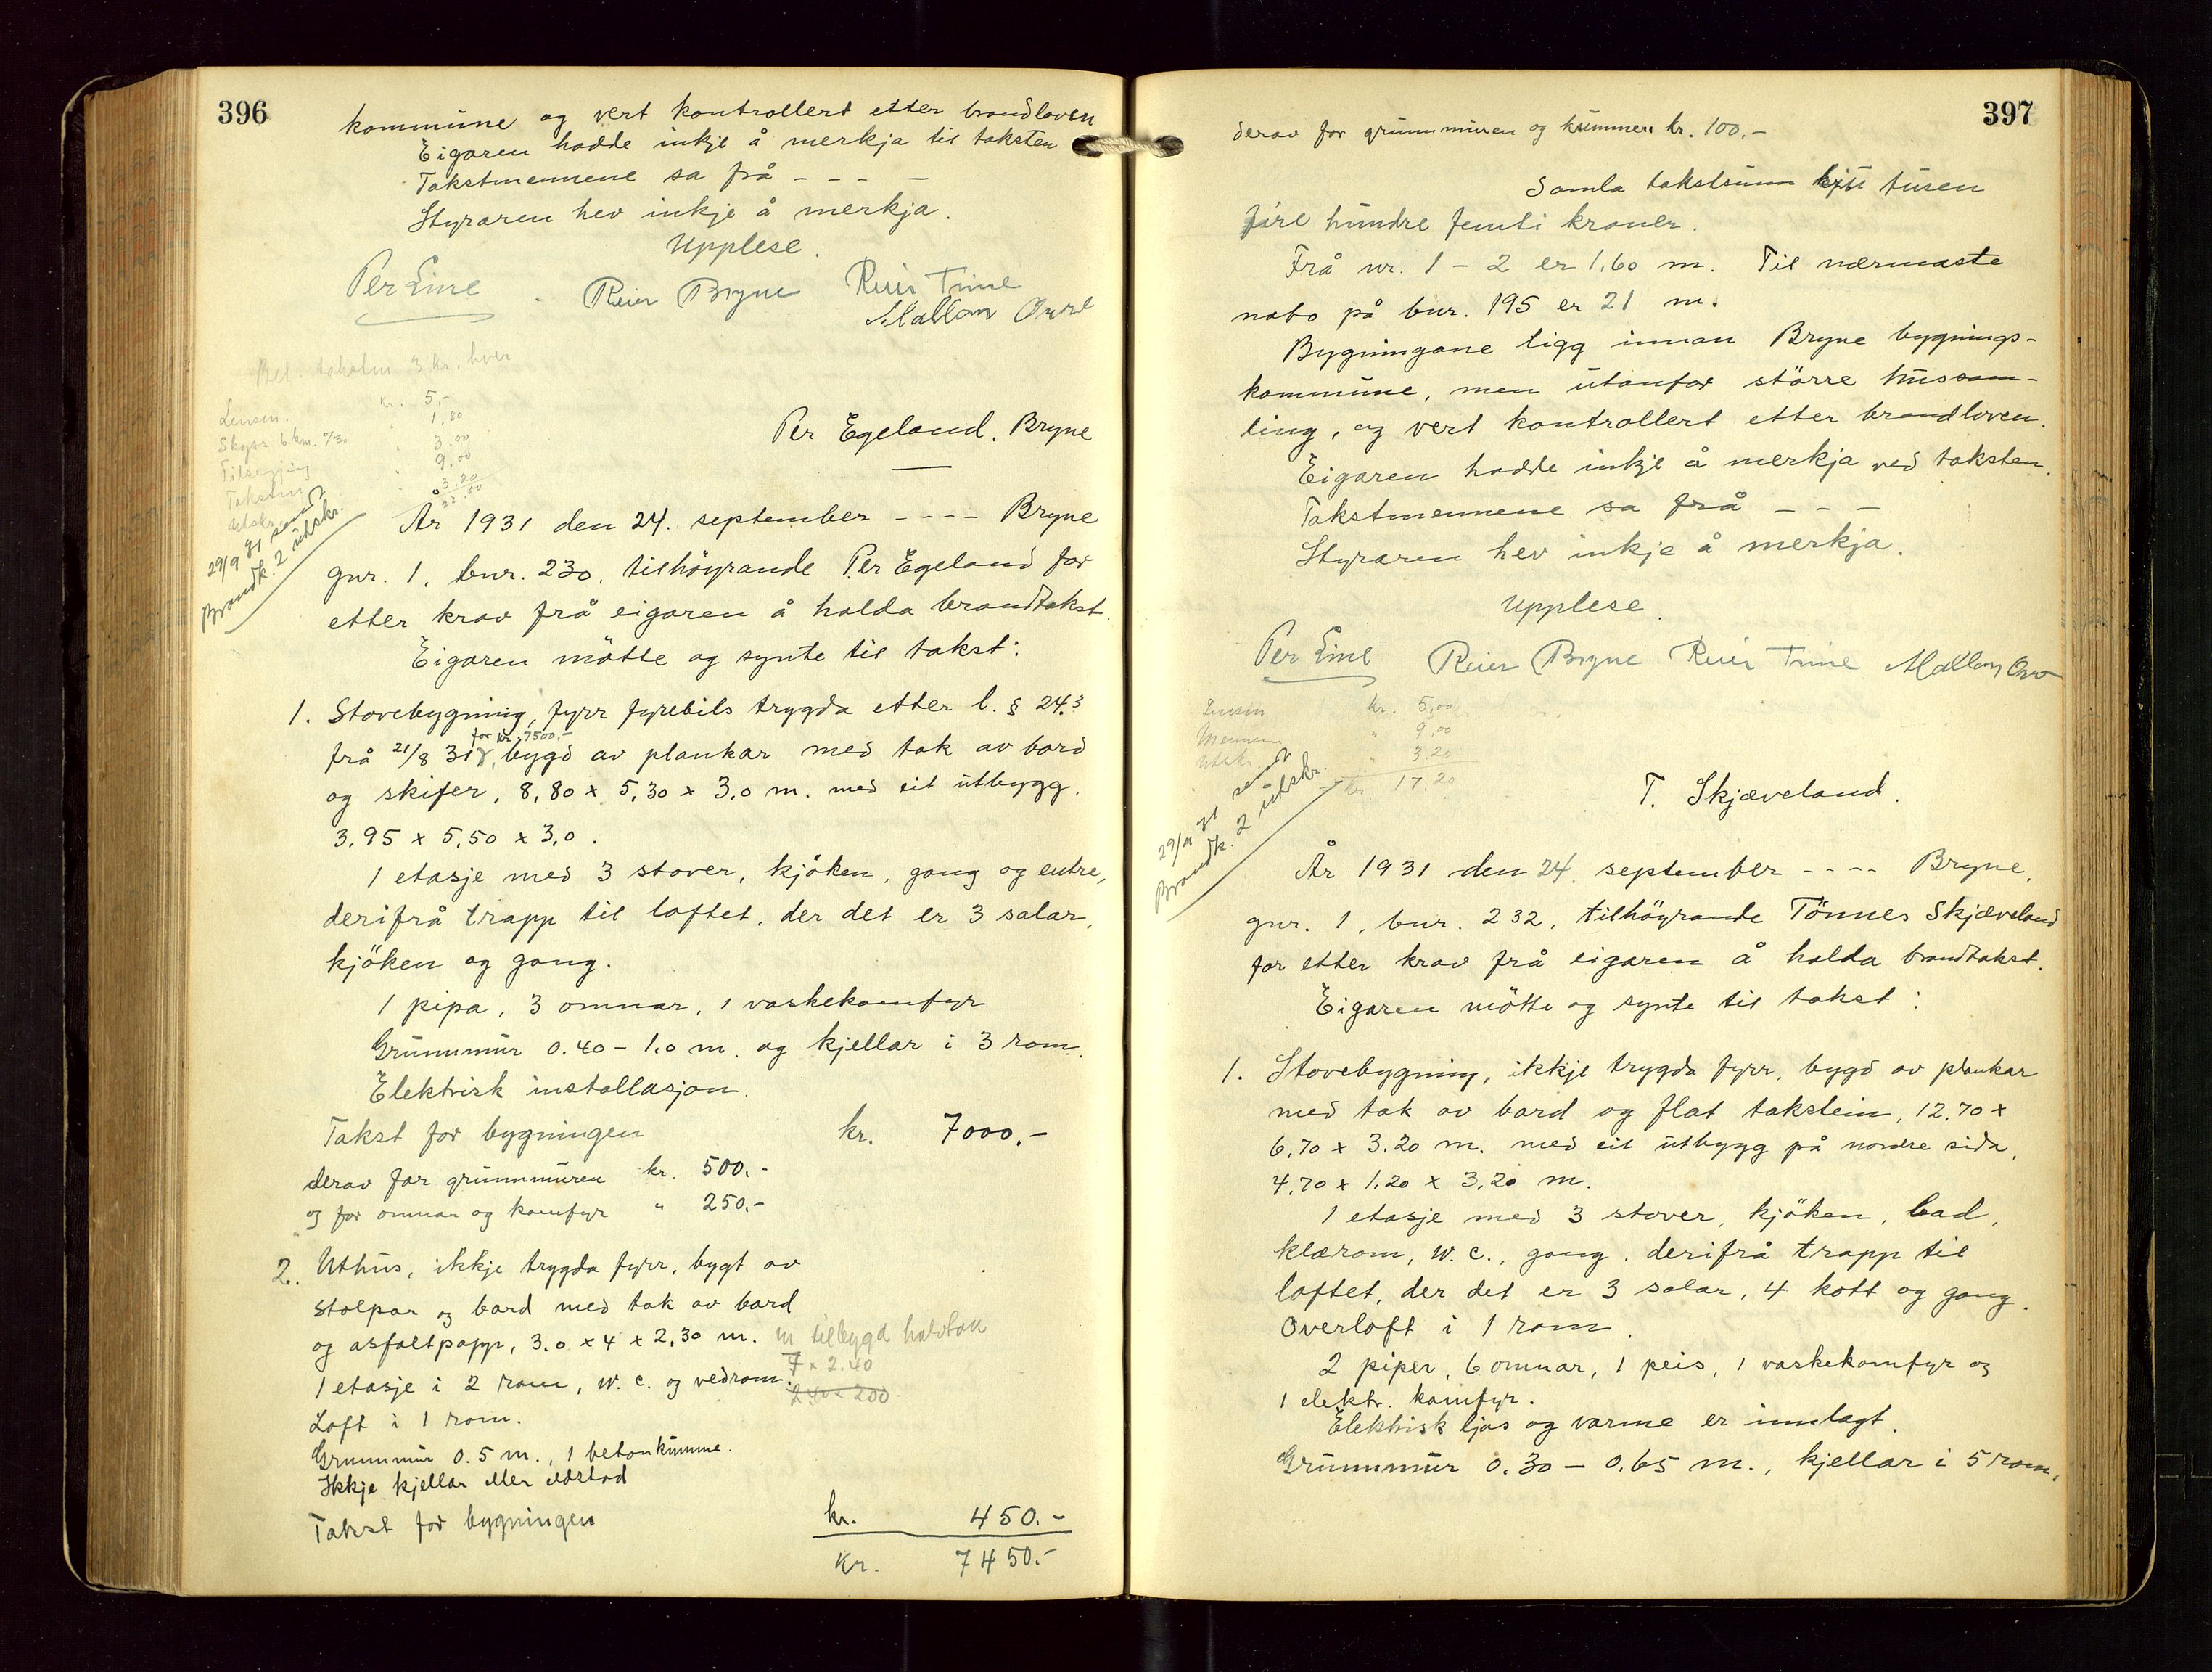 396
kommune og vert kontrollert etter brandloven
Eigaren hadde inkje å merkja til taksten
Takstmennene sa frå - - - -
Styraren hev inkje å merkja.
Upplese.
Per Line Reier Bryne Reier Time
kr. hver
Lensm. kr. 5,-
Skyss 6 km. 1,80
3,00
9,00
3,20
22,00
Per Egeland. Bryne
29/9 31 sendt
Brandk. 2 utskr.
År 1931 den 24. september - - - - Bryne
gnr. 1, bnr. 230, tilhöyrande Per Egeland for
etter krav frå eigaren å halda brandtakst.
Eigaren mötte og synte til takst:
1. Stovebygning, fyrr fyrebils trygda etter l. § 24.3
for kr. 7500.-
frå 21/8 31, bygd av plankar med tak av bord
og skifer, 8,80 x 5,30 x 3,0 m. med eit utbygg,
3,95 x 5,50 x 3,0.
1 etasje med 3 stover, kjöken, gang og entre,
derifrå trapp til loftet, der det er 3 salar,
kjöken og gang.
1 pipa, 3 omnar, 1 vaskekomfyr
Grunnmur 0.40 - 1.0 m. og kjellar i 3 rom.
Elektrisk installasjon.
Takst for bygningen kr. 7000.-
derav for grunnmuren kr. 500.-
og for omnar og komfyr " 250.-
2. Uthus, ikkje trygda fyrr, bygt av
stolpar og bord med tak av bord
og asfaltpapp, 3.0 x 4 x 2,30 m. m tilbygd halvtak
7 x 2.40
1 etasje i 2 rom, w.c. og vedrom.
240 x 200
Loft i 1 rom.
Grunnmur 0.5 m., 1 betonkumme.
Ikkje kjellar eller eldstad
Takst for bygningen kr. 450.-
Kr. 7450.-
397
derav for grunnmuren og kummen kr. 100.-
Samla takstsum sju tusen
fire hundre femti kroner.
Frå nr. 1 - 2 er 1,60 m. Til nærmaste
nabo på bnr. 195 er 21 m.
Bygningane ligg innan Bryne bygnings-
kommune, men utanfor större hussam-
ling, og vert kontrollert etter brandloven.
Eigaren hadde inkje å merkja ved taksten.
Takstmennene sa frå - - -
Styraren hev inkje å merkja.
Upplese.
Per Line Reier Bryne Reier Time
Lensm kr. 5,00
Mennene " 9,00
Utskr. " 3,20
kr. 17,20
sendt
Brandk. 2 utskr.
T. Skjæveland.
År 1931 den 24. september - - - - Bryne,
gnr. 1, bnr. 232, tilhöyrande Tönnes Skjæveland
for etter krav frå eigaren å halda brandtakst.
Eigaren mötte og synte til takst:
1. Stovebygning, ikkje trygda fyrr, bygd av plankar
med tak av bord og flat takstein, 12,70 x
6,70 x 3,20 m. med eit utbygg på nordre sida,
4,70 x 1,20 x 3,20 m.
1 etasje med 3 stover, kjöken, bad,
klærom, w.c., gang, derifrå trapp til
loftet, der det er 3 salar, 4 kott og gang.
Overloft i 1 rom.
2 piper, 6 omnar, 1 peis, 1 vaskekomfyr og
1 elektr. komfyr.
Elektrisk ljos og varme er innlagt.
Grunnmur 0.30 - 0.65 m., kjellar i 5 rom,